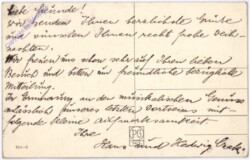 Liebe Freunde!
Wir senden Ihnen herzlichste Grüsse
und wünschen Ihnen recht frohe Weih-
nachten.
Wir freuen uns schon sehr auf Ihren lieben
Besuch und bitten um freundliche
In Erinnerung an den musikalischen Genuss
anlässlich unseres letzten mit-
folgende kleine Aufmerksamkeit.
Ihre
Hans und Hedwig